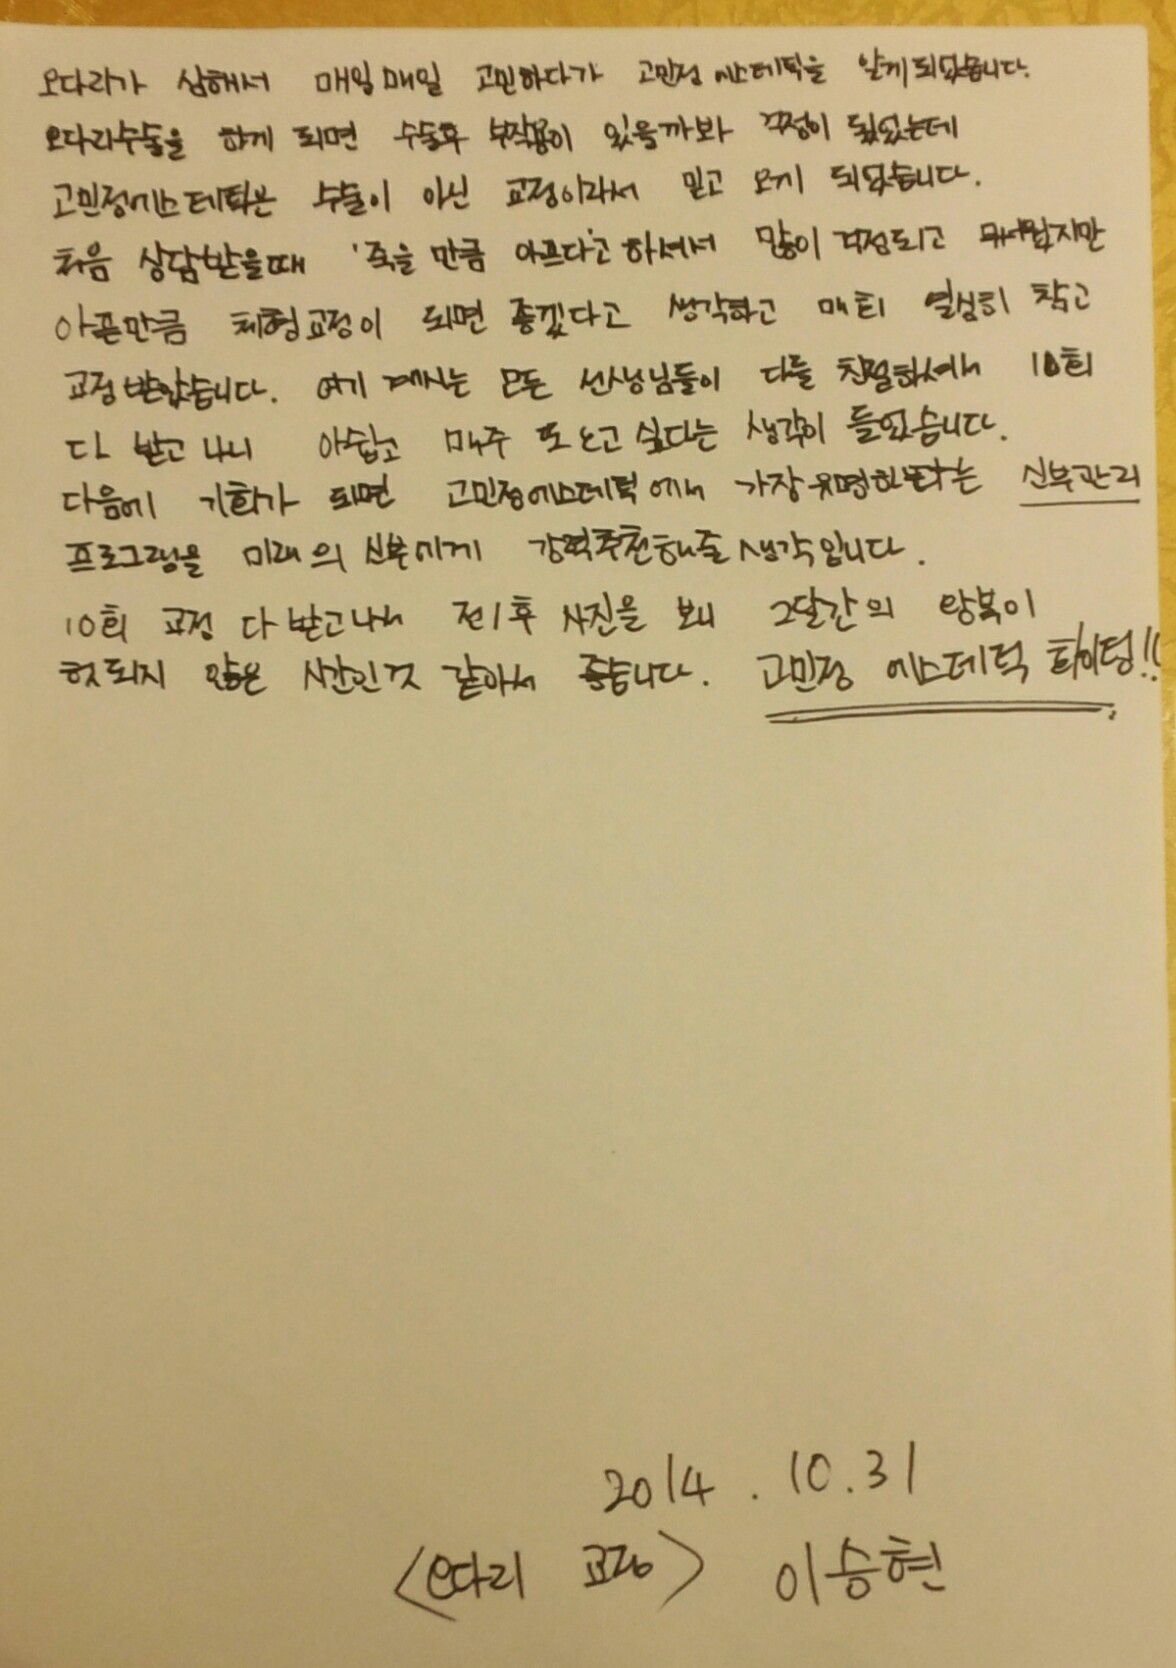 오다리가 심해서 매일매일 고민하다가 고민정에스테틱을 알게되었습니다.
오다리수술을 하게 되면 수술후 부작용이 있을까봐 걱정이 됐었는데
고민정에스테틱은 수술이 아닌 교정이라서 믿고 오게 되었습니다.
처음 상담받을때 '죽을 만큼 아프다'고 하셔서 많이 걱정되고 무서웠지만
아픈만큼 체형교정이 되면 좋겠다고 생각하고 매티 열심히 참고
교정받았습니다. 여기 계시는 모든 선생님들이 다들 친절하셔서 10회
다 받고 나니 아쉽고 매주 또 오고 싶다는 생각이 들었습니다.
다음에 기회가 되면 고민정에스테틱에서 가장 유명하다는 신부관리
프로그램을 미래의 신부에게 강력추천해줄 생각입니다.
10회 교정 다 받고나서 전/후 사진을 보니 2달간의 왕복이
헛되지 않은 시간인것 같아서 좋습니다. 고민정 에스테틱 화이팅!!
2014. 10. 31
<오다리 교정> 이승현